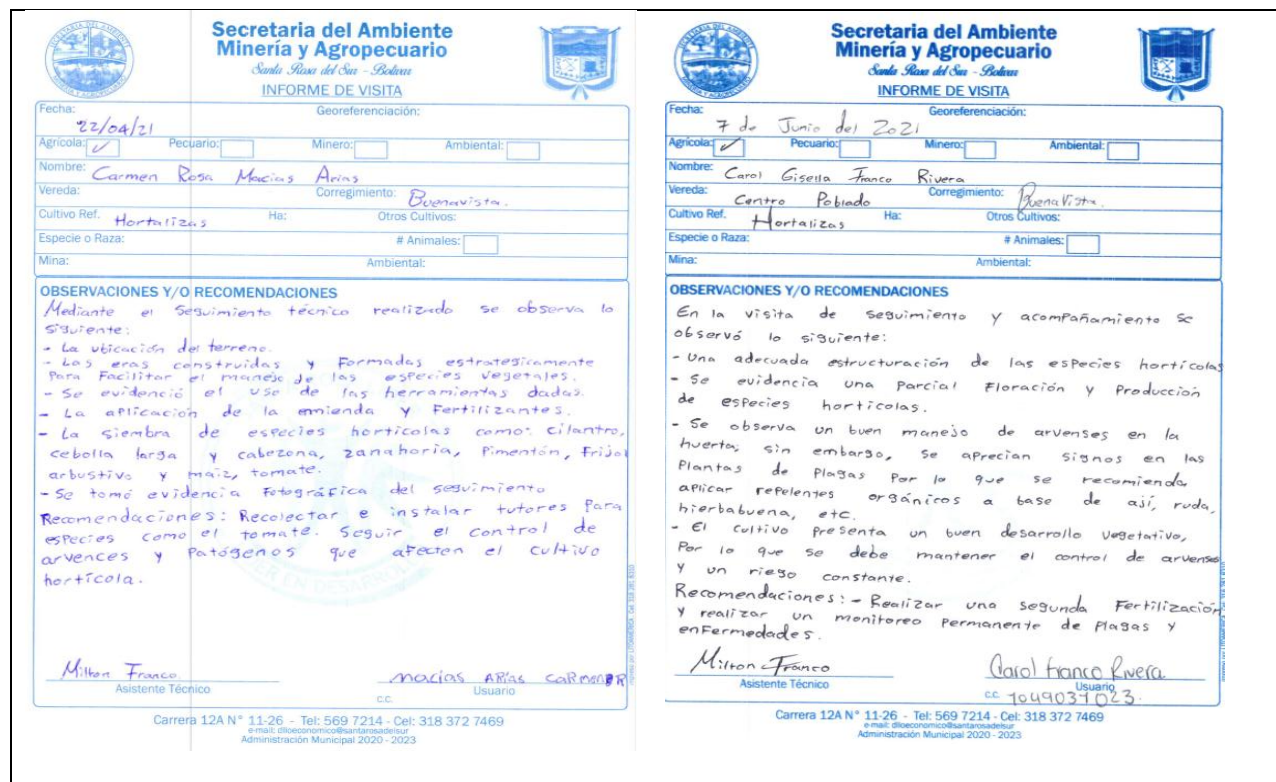 Secretaria del Ambiente
Minería y Agropecuario
Santa Rosa del Sur - Bolívar
INFORME DE VISITA
Fecha: Georeferenciación:
22/04/21
Agrícola: ✓ Pecuario: Minero: Ambiental:
Nombre: Carmen Rosa Macias Arias
Vereda: Corregimiento: Buenavista.
Cultivo Ref. Hortalizas Ha: Otros Cultivos:
Especie o Raza: # Animales:
Mina: Ambiental:
OBSERVACIONES Y/O RECOMENDACIONES
Mediante el Seguimiento técnico realizado se observa lo
siguiente:
- La ubicación del terreno.
- Las eras construidas y Formadas estrategicamente
Para Facilitar el manejo de las especies vegetales.
- Se evidenció el uso de las herramientas dadas.
- La aplicación de la emienda y Fertilizantes.
- La siembra de especies hortícolas como: cilantro,
cebolla larga y cabezona, zanahoria, Pimentón, Frijol
arbustivo y maíz, tomate.
- Se tomó evidencia Fotográfica del seguimiento
Recomendaciones: Recolectar e instalar tutores Para
especies como el tomate. Seguir el control de
arvences y Patógenos que afecten el cultivo
hortícola.
Milton Franco
Asistente Técnico
macias ARias CaRmen R
Usuario
c.c.
Carrera 12A N° 11-26 - Tel: 569 7214 - Cel: 318 372 7469
e-mail: dlloeconomico@santarosadelsur
Administración Municipal 2020 - 2023
Secretaria del Ambiente
Minería y Agropecuario
Santa Rosa del Sur - Bolívar
INFORME DE VISITA
Fecha: Georeferenciación:
7 de Junio del 2021
Agrícola: ✓ Pecuario: Minero: Ambiental:
Nombre: Carol Gisella Franco Rivera
Vereda: Centro Poblado Corregimiento: Buena Vista.
Cultivo Ref. Hortalizas Ha: Otros Cultivos:
Especie o Raza: # Animales:
Mina: Ambiental:
OBSERVACIONES Y/O RECOMENDACIONES
En la visita de seguimiento y acompañamiento se
observó lo siguiente:
- Una adecuada estructuración de las especies hortícolas
- Se evidencia una Parcial Floración y Producción
de especies hortícolas.
- Se observa un buen manejo de arvenses en la
huerta, sin embargo, se aprecian signos en las
Plantas de Plagas Por lo que se recomienda
aplicar repelentes orgánicos a base de ají, ruda,
hierbabuena, etc.
- El cultivo Presenta un buen desarrollo vegetativo,
Por lo que se debe mantener el control de arvenses
y un riego constante.
Recomendaciones: - Realizar una segunda Fertilización
y realizar un monitoreo Permanente de Plagas y
enfermedades.
Milton Franco
Asistente Técnico
Carol Franco Rivera
Usuario
c.c. 1049031023
Carrera 12A N° 11-26 - Tel: 569 7214 - Cel: 318 372 7469
e-mail: dlloeconomico@santarosadelsur
Administración Municipal 2020 - 2023